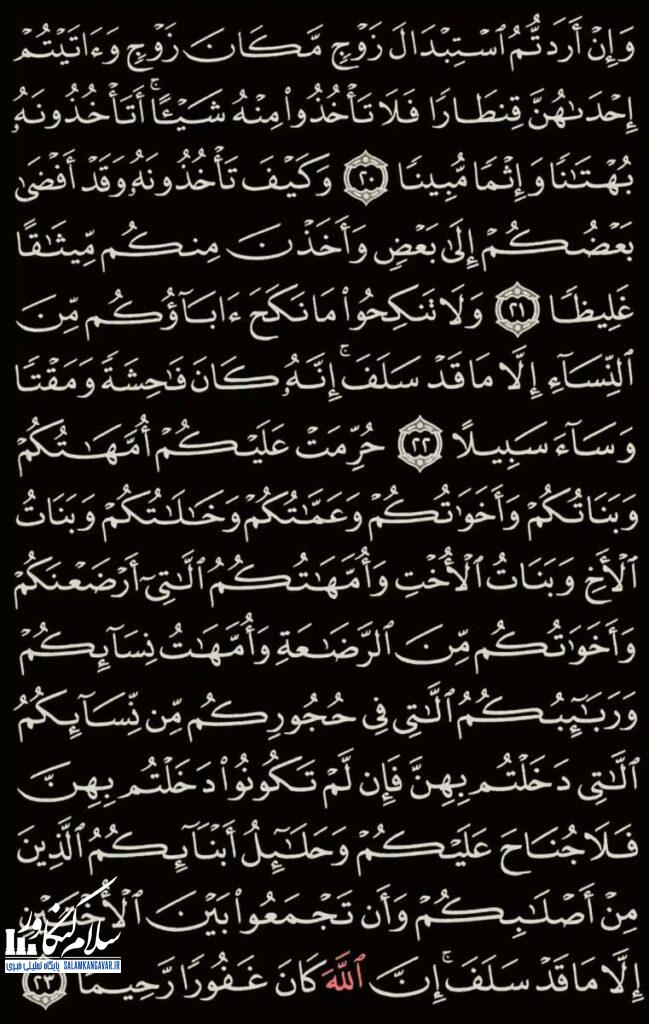 وَإِنْ أَرَدتُّمُ ٱسْتِبْدَالَ زَوْجٍ مَّكَانَ زَوْجٍ وَءَاتَيْتُمْ
إِحْدَىٰهُنَّ قِنطَارًا فَلَا تَأْخُذُوا۟ مِنْهُ شَيْـًٔا ۚ أَتَأْخُذُونَهُۥ
بُهْتَـٰنًا وَإِثْمًا مُّبِينًا ﴿٢٠﴾ وَكَيْفَ تَأْخُذُونَهُۥ وَقَدْ أَفْضَىٰ
بَعْضُكُمْ إِلَىٰ بَعْضٍ وَأَخَذْنَ مِنكُم مِّيثَـٰقًا
غَلِيظًا ﴿٢١﴾ وَلَا تَنكِحُوا۟ مَا نَكَحَ ءَابَآؤُكُم مِّنَ
ٱلنِّسَآءِ إِلَّا مَا قَدْ سَلَفَ ۚ إِنَّهُۥ كَانَ فَـٰحِشَةً وَمَقْتًا
وَسَآءَ سَبِيلًا ﴿٢٢﴾ حُرِّمَتْ عَلَيْكُمْ أُمَّهَـٰتُكُمْ
وَبَنَاتُكُمْ وَأَخَوَٰتُكُمْ وَعَمَّـٰتُكُمْ وَخَـٰلَـٰتُكُمْ وَبَنَاتُ
ٱلْأَخِ وَبَنَاتُ ٱلْأُخْتِ وَأُمَّهَـٰتُكُمُ ٱلَّـٰتِىٓ أَرْضَعْنَكُمْ
وَأَخَوَٰتُكُم مِّنَ ٱلرَّضَـٰعَةِ وَأُمَّهَـٰتُ نِسَآئِكُمْ
وَرَبَـٰٓئِبُكُمُ ٱلَّـٰتِى فِى حُجُورِكُم مِّن نِّسَآئِكُمُ
ٱلَّـٰتِى دَخَلْتُم بِهِنَّ فَإِن لَّمْ تَكُونُوا۟ دَخَلْتُم بِهِنَّ
فَلَا جُنَاحَ عَلَيْكُمْ وَحَلَـٰٓئِلُ أَبْنَآئِكُمُ ٱلَّذِينَ
مِنْ أَصْلَـٰبِكُمْ وَأَن تَجْمَعُوا۟ بَيْنَ ٱلْأُخْتَيْنِ
إِلَّا مَا قَدْ سَلَفَ ۗ إِنَّ ٱللَّهَ كَانَ غَفُورًا رَّحِيمًا ﴿٢٣﴾
سلام کنگاور
پایگاه تحلیلی خبری SALAMKANGAVAR.IR